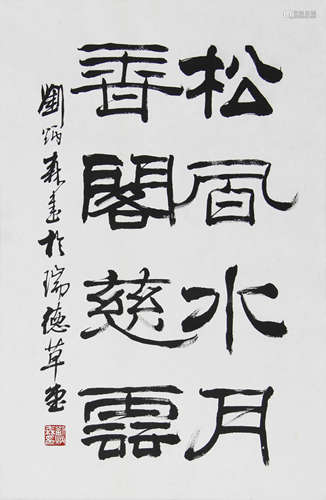 松風水月
香閣慈雲
劉炳森書於瑞德草堂